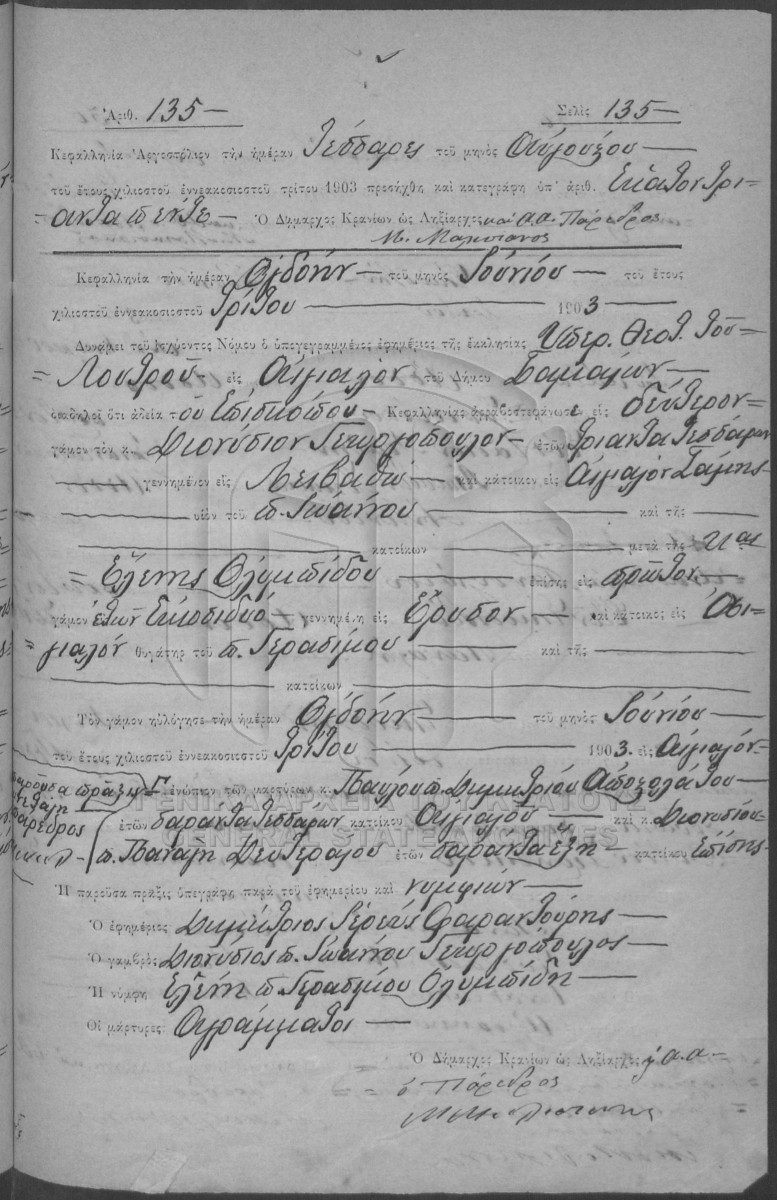 Ἀριθ. 135 — Σελὶς 135 —
Κεφαλληνία Ἀργοστόλιον τὴν ἡμέραν Τέσσαρες τοῦ μηνὸς Αὐγούστου —
τοῦ ἔτους χιλιοστοῦ ἐννεακοσιοστοῦ τρίτου 1903 προσήχθη καὶ κατεγράφη ὑπ' ἀριθ. Ἑκατὸν τρι=
=άντα πέντε — Ὁ Δήμαρχος Κρανίων ὡς Ληξίαρχος καὶ α.α. Πάρεδρος
Κεφαλληνία τὴν ἡμέραν Ὀγδόην — τοῦ μηνὸς Ἰουνίου — τοῦ ἔτους
χιλιοστοῦ ἐννεακοσιοστοῦ Τρίτου — 1903 —
Δυνάμει τοῦ ἰσχύοντος Νόμου ὁ ὑπογεγραμμένος ἐφημέριος τῆς ἐκκλησίας Ὑπερ. Θεοτ. τοῦ =
= Λουτροῦ — εἰς Αἰγιαλὸν τοῦ Δήμου Σαμαίων —
διαδηλοῖ ὅτι ἀδεία τοῦ Ἐπισκόπου — Κεφαλληνίας ἀρραβοστεφάνωσε εἰς δεύτερον —
γάμον τὸν κ. Διονύσιον Γεωργόπουλον — ἐτῶν τριάντα τεσσάρων
— γεννημένον εἰς Λειβαθὼ — καὶ κάτοικον εἰς Αἰγιαλὸν Σάμης —
— υἱὸν τοῦ π. Ἰωάννου — καὶ τῆς —
— κατοίκων — μετὰ τῆς
= Ἑλένης Ὀλυμπίδου — ἐπίσης εἰς πρῶτον
γάμον ἐτῶν Εἰκοσιδυό — γεννημένη εἰς Ἔρυσον — καὶ κάτοικος εἰς Αἰ=
= γιαλόν θυγάτηρ τοῦ π. Γερασίμου — καὶ τῆς —
— κατοίκων —
Τὸν γάμον ηὐλόγησε τὴν ἡμέραν Ὀγδόην — τοῦ μηνὸς Ἰουνίου —
τοῦ ἔτους χιλιοστοῦ ἐννεακοσιοστοῦ Τρίτου — 1903. εἰς Αἰγιαλόν —
παροῦσα πρᾶξις
πάρεδρος
ἐνώπιον τῶν μαρτύρων κ. Παύλου π. Δημητρίου Ἀποστολάτου —
ΓΕΝΙΚΑ ΑΡΧΕΙΑ ΤΟΥ ΚΡΑΤΟΥΣ
ἐτῶν σαράντα τεσσάρων κατοίκου Αἰγιαλοῦ — καὶ κ. Διονυσίου —
GENERAL STATE ARCHIVES
π. Παναγῆ Δευτεραίου ἐτῶν σαράντα ἕξη — κατοίκου Ἐπίσης —
Ἡ παροῦσα πρᾶξις ὑπεγράφη παρὰ τοῦ ἐφημερίου καὶ νυμφιῶν —
Ὁ ἐφημέριος Δημήτριος Ἱερεὺς Φαραντούρης —
Ὁ γαμβρὸς Διονύσιος π. Ἰωάννου Γεωργόπουλος —
Ἡ νύμφη Ἑλένη π. Γερασίμου Ὀλυμπίδη —
Οἱ μάρτυρες: Ἀγράμματοι —
Ὁ Δήμαρχος Κρανίων ὡς Ληξίαρχος α.α —
ὁ Πάρεδρος